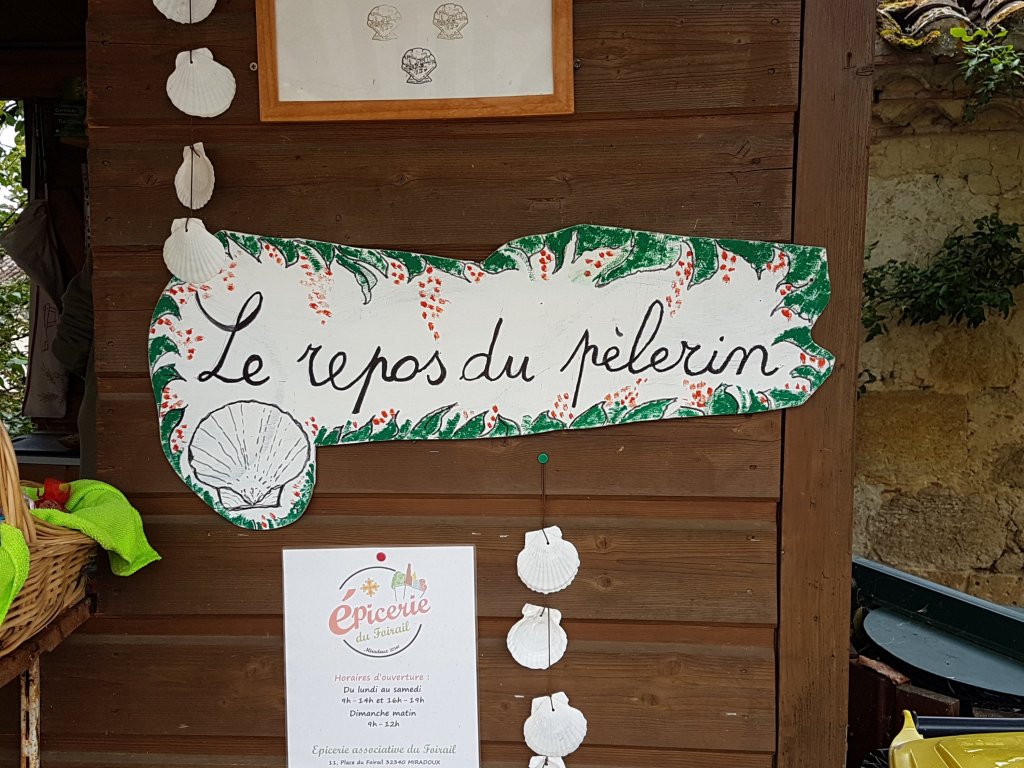 Le repos du pèlerin
épicerie
du Foirail
Horaires d'ouverture :
Du lundi au samedi
9h - 14h et 16h - 19h
Dimanche matin
9h - 12h
Epicerie associative du Foirail
11, Place du Foirail 32340 MIRADOUX